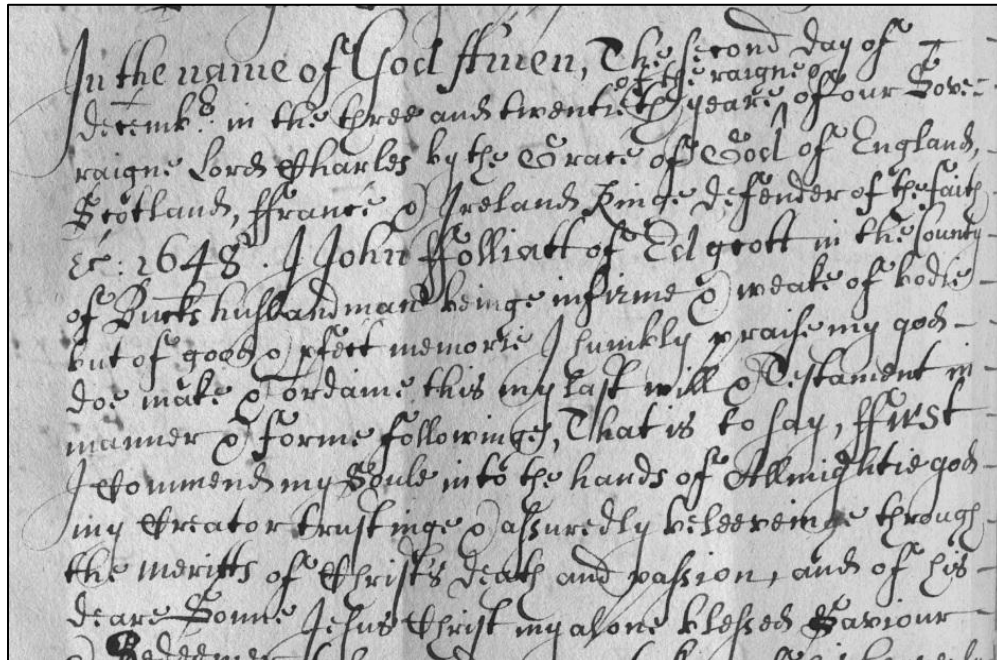 In the name of God Amen, The second day of
decemb.r in the three and twentieth yeare of the raigne of our Sove-
raigne Lord Charles by the Grace of God of England,
Scotland, ffrance & Ireland Kinge defender of the faith
&c: 1648. I John ffolliatt of Edgcott in the County
of Bucks husbandman beinge infirme & weake of bodie
but of good & pfect memorie I humbly praise my god
doe make & ordaine this my last will & Testament in
manner & forme followinge, That is to say, ffirst
I Commend my Soule into the hands of Allmightie god
my Creator trustinge & assuredly beleeveinge through
the meritts of Christs death and passion, and of his
deare Sonne Jesus Christ my alone blessed Saviour
& Redeemer